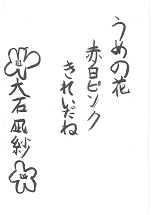 うめの花
赤白ピンク
きれいだね
大石凪紗